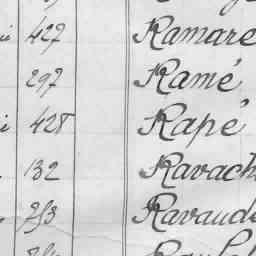 427 Ramare
297 Ramé
428 Rapé
132 Ravach
Ravaud